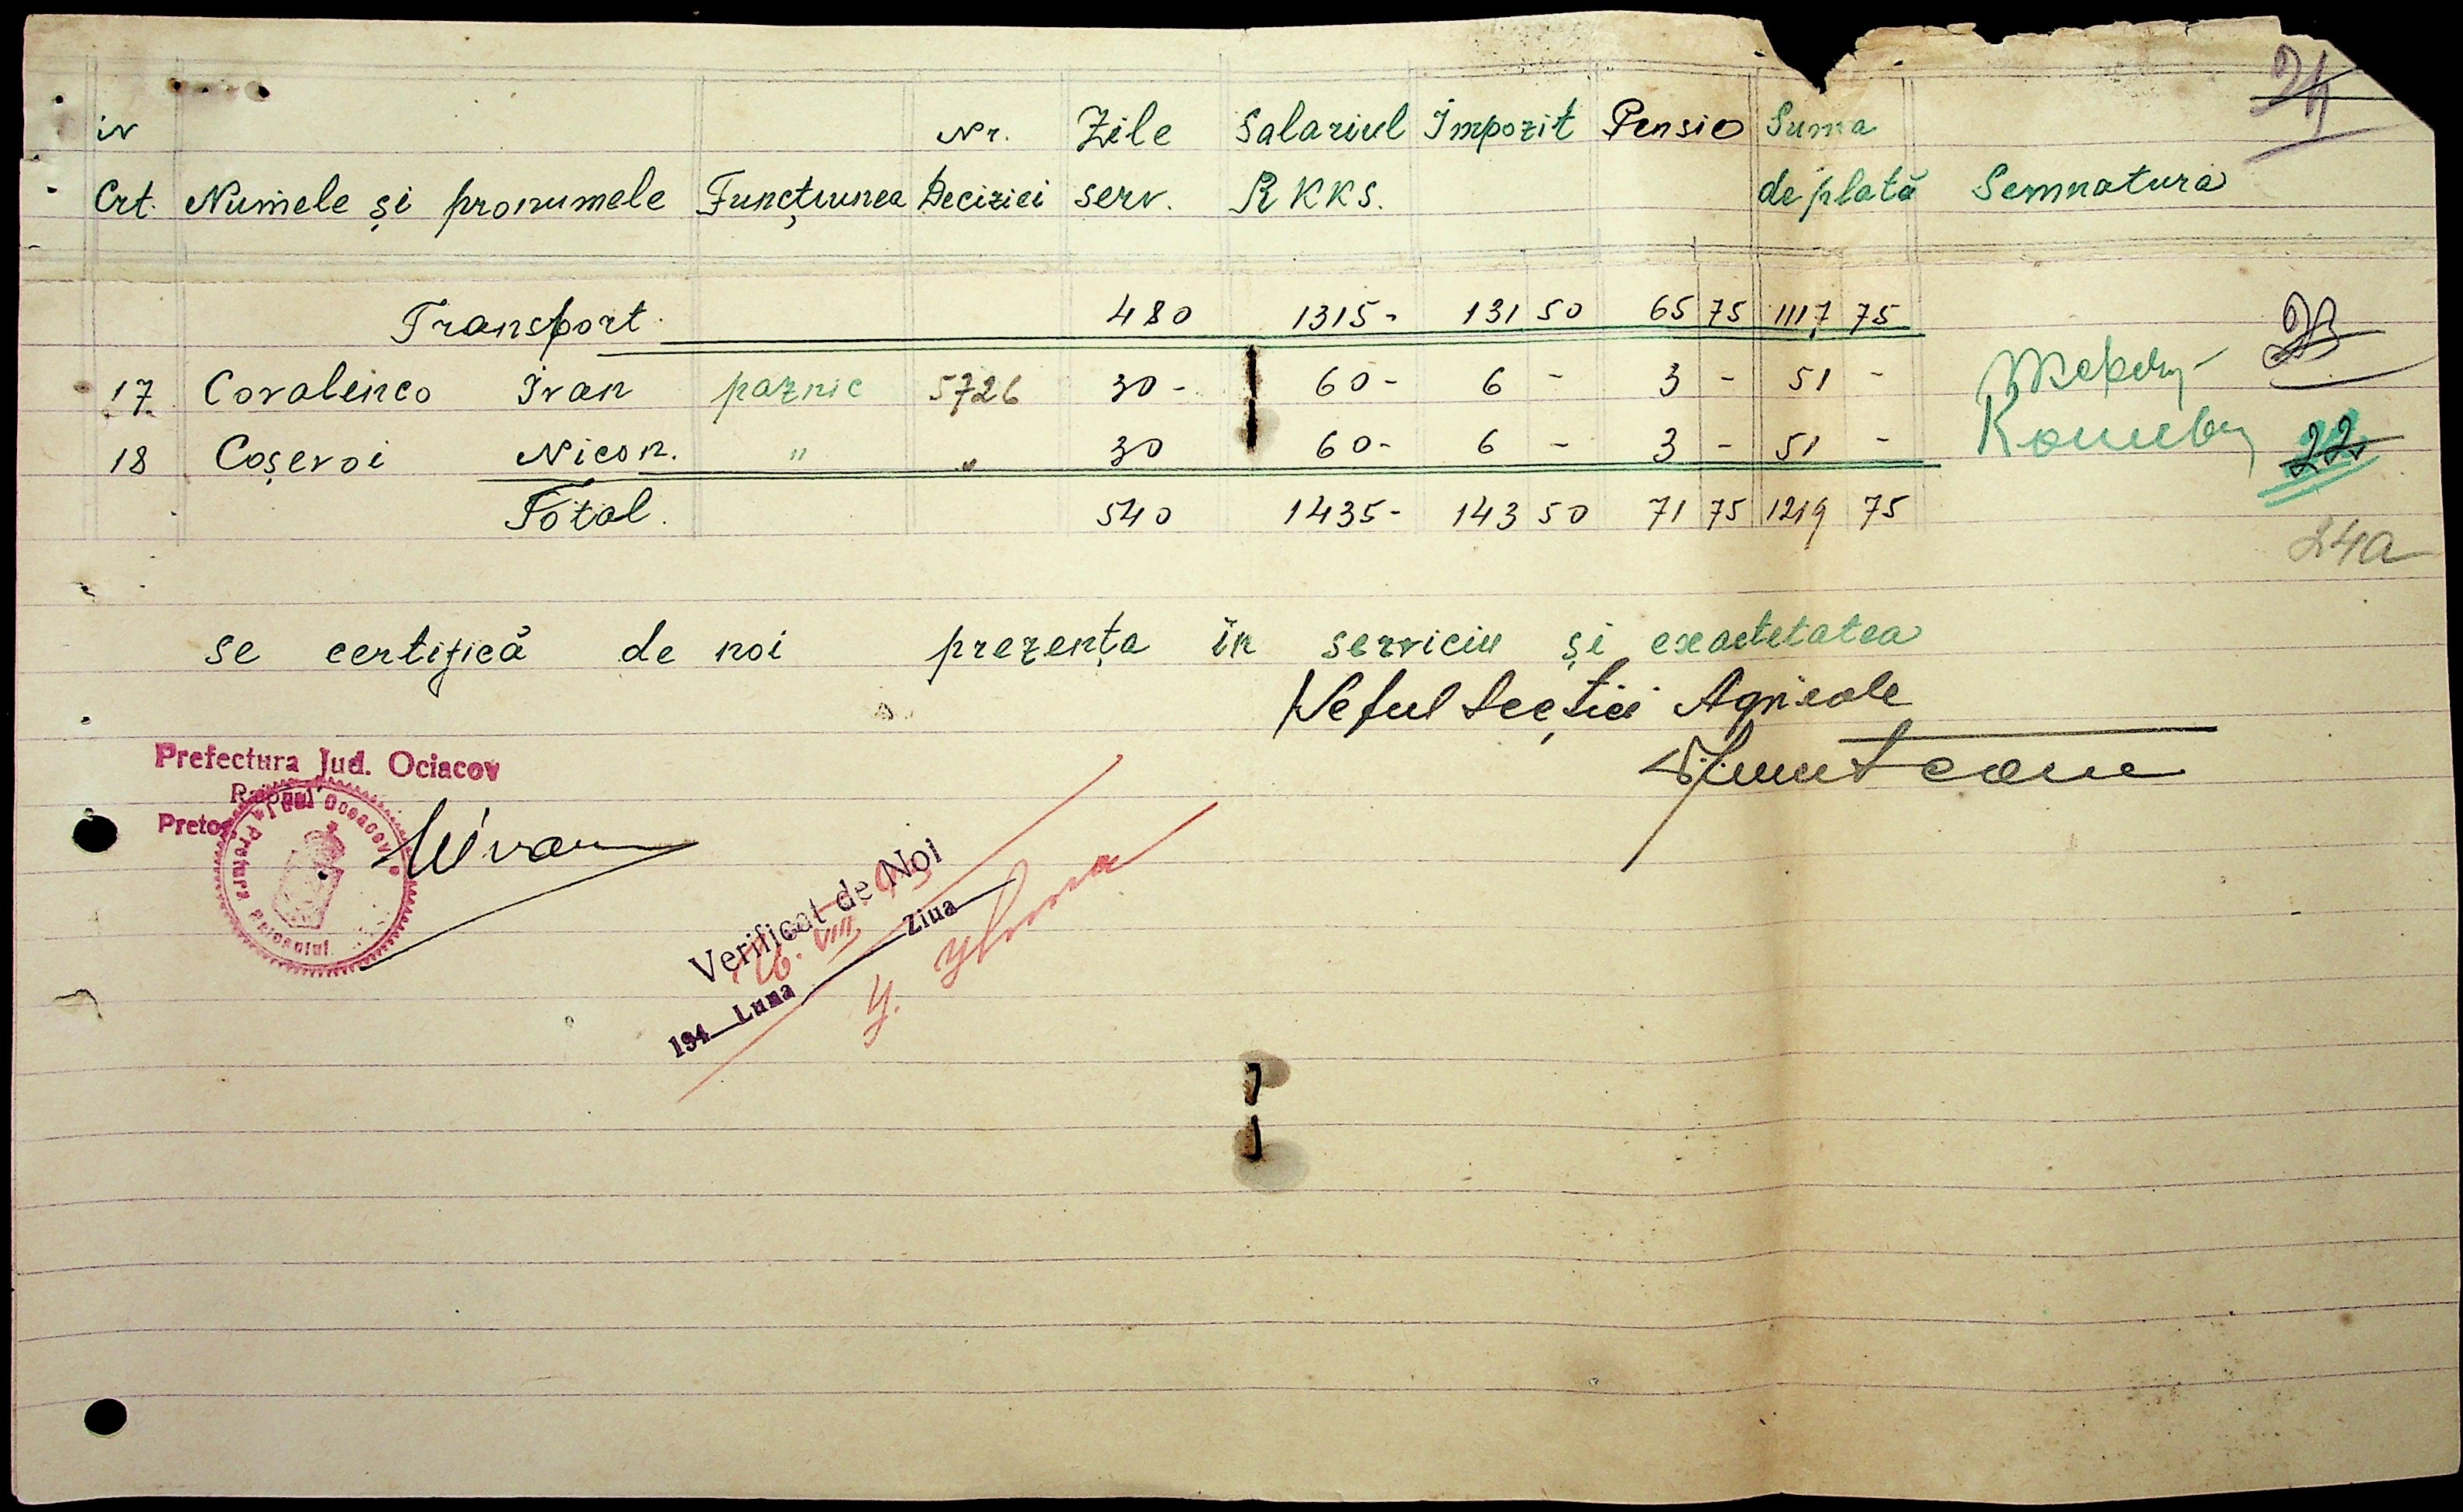 24
Nr. Zile Salariul Impozit Pensie Suma
Crt. Numele și pronumele Funcțiunea Deciziei serv. RKKS. de plată Semnatura
Transport. 480 1315- 131 50 65 75 1117 75
23
17 Covalenco Ivan paznic 5726 30- 60- 6 - 3 - 51 -
18 Coșevoi Nicon. " " 30 60- 6 - 3 - 51 -
22
Total. 540 1435- 143 50 71 75 1219 75
24a
se certifică de noi prezența în serviciu și exactetatea
Șeful Secției Agricole
Munteanu
Prefectura Jud. Ociacov
Raionul
Pretor
Pretura Raionului
Verificat de Noi
194 Luna Ziua